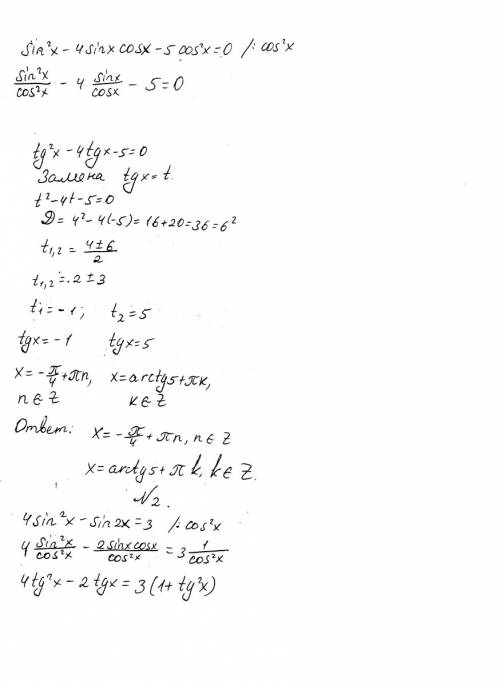 sin²x − 4 sinx cosx − 5 cos²x = 0 /: cos²x
sin²x/cos²x − 4 sinx/cosx − 5 = 0
tg²x − 4tgx − 5 = 0
Замена tgx = t.
t² − 4t − 5 = 0
D = 4² − 4(−5) = 16 + 20 = 36 = 6²
t₁,₂ = (4 ± 6)/2
t₁,₂ = 2 ± 3
t₁ = −1; t₂ = 5
tgx = −1 tgx = 5
x = −π/4 + πn, x = arctg5 + πk,
n ∈ Z k ∈ Z
Ответ: x = −π/4 + πn, n ∈ Z
x = arctg5 + πk, k ∈ Z.
N2.
4sin²x − sin2x = 3 /: cos²x
4 sin²x/cos²x − 2sinxcosx/cos²x = 3 1/cos²x
4tg²x − 2tgx = 3(1 + tg²x)